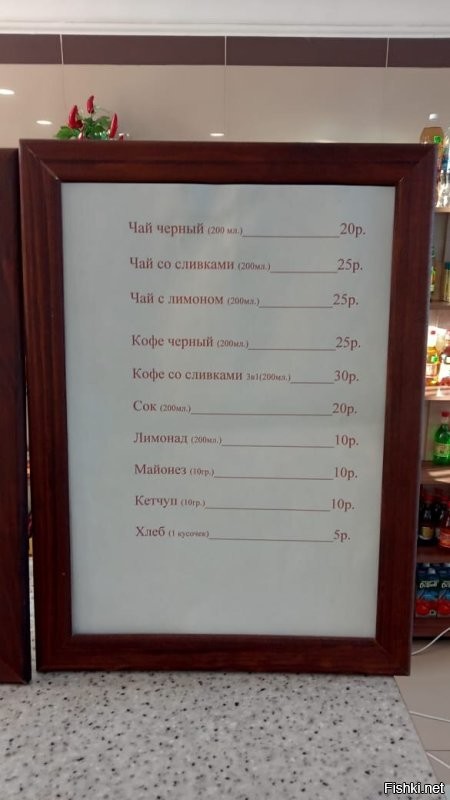 Чай черный (200 мл.)____________20р.
Чай со сливками (200мл.)_________25р.
Чай с лимоном (200мл.)__________25р.
Кофе черный (200мл.)____________25р.
Кофе со сливками 3в1(200мл.)______30р.
Сок (200мл.)___________________20р.
Лимонад (200мл.)_______________10р.
Майонез (10гр.)________________10р.
Кетчуп (10гр.)_________________10р.
Хлеб (1 кусочек)_________________5р.
Fishki.net